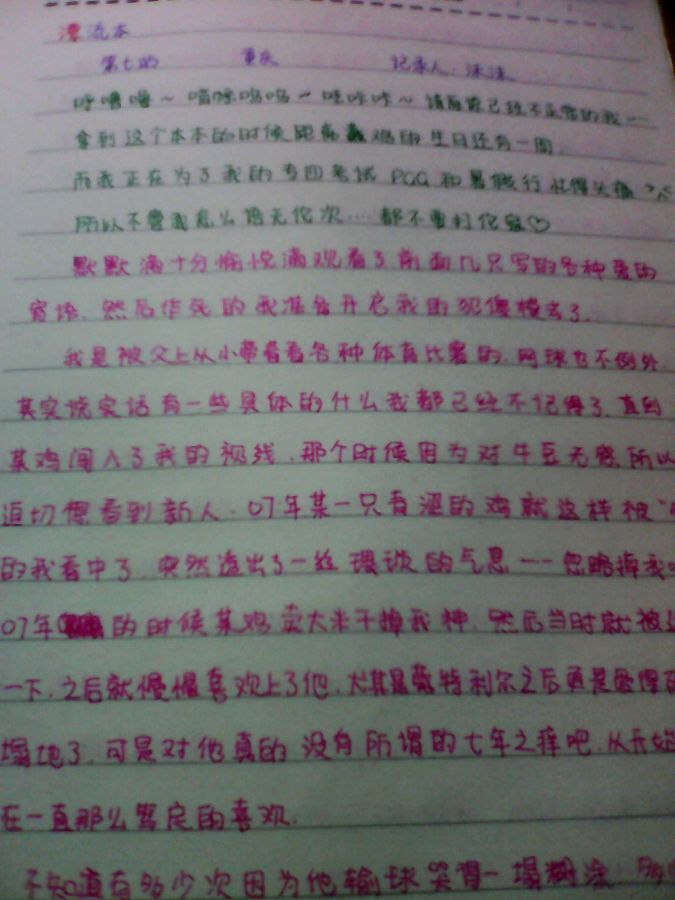 漂流本
第七的 重庆 记录人：沫沫
呼噜噜～喵咪呜呜～哇咔咔～请原谅已经不正常的我——
拿到这个本本的时候距离鸡的生日还有一周.
而我正在为了我的专四考试 PCG 和暑假行 忙得头痛 >^<
所以不管我怎么语无伦次....都不要打伦家♡
默默滴十分愉悦滴观看了前面几只写的各种爱的
寄语.然后作死的我准备开启我的犯傻模式了.
我是被父上从小带着看各种体育比赛的.网球也不例外.
其实说实话有一些具体的什么我都已经不记得了.直到
某鸡闯入了我的视线.那个时候因为对牛豆无感所以
迫切想看到新人.07年某一只青涩的鸡就这样被"
的我看中了.突然透出了一丝猥琐的气息——忽略掉我
07年的时候某鸡卖大米干掉我神.然后当时就被
一下.之后就慢慢喜欢上了他.尤其是戴特利尔之后更是爱得
塌地了.可是对他真的没有所谓的七年之痒吧.从开始
在一直那么笃定的喜欢.
不知道有多少次因为他输球哭得一塌糊涂.